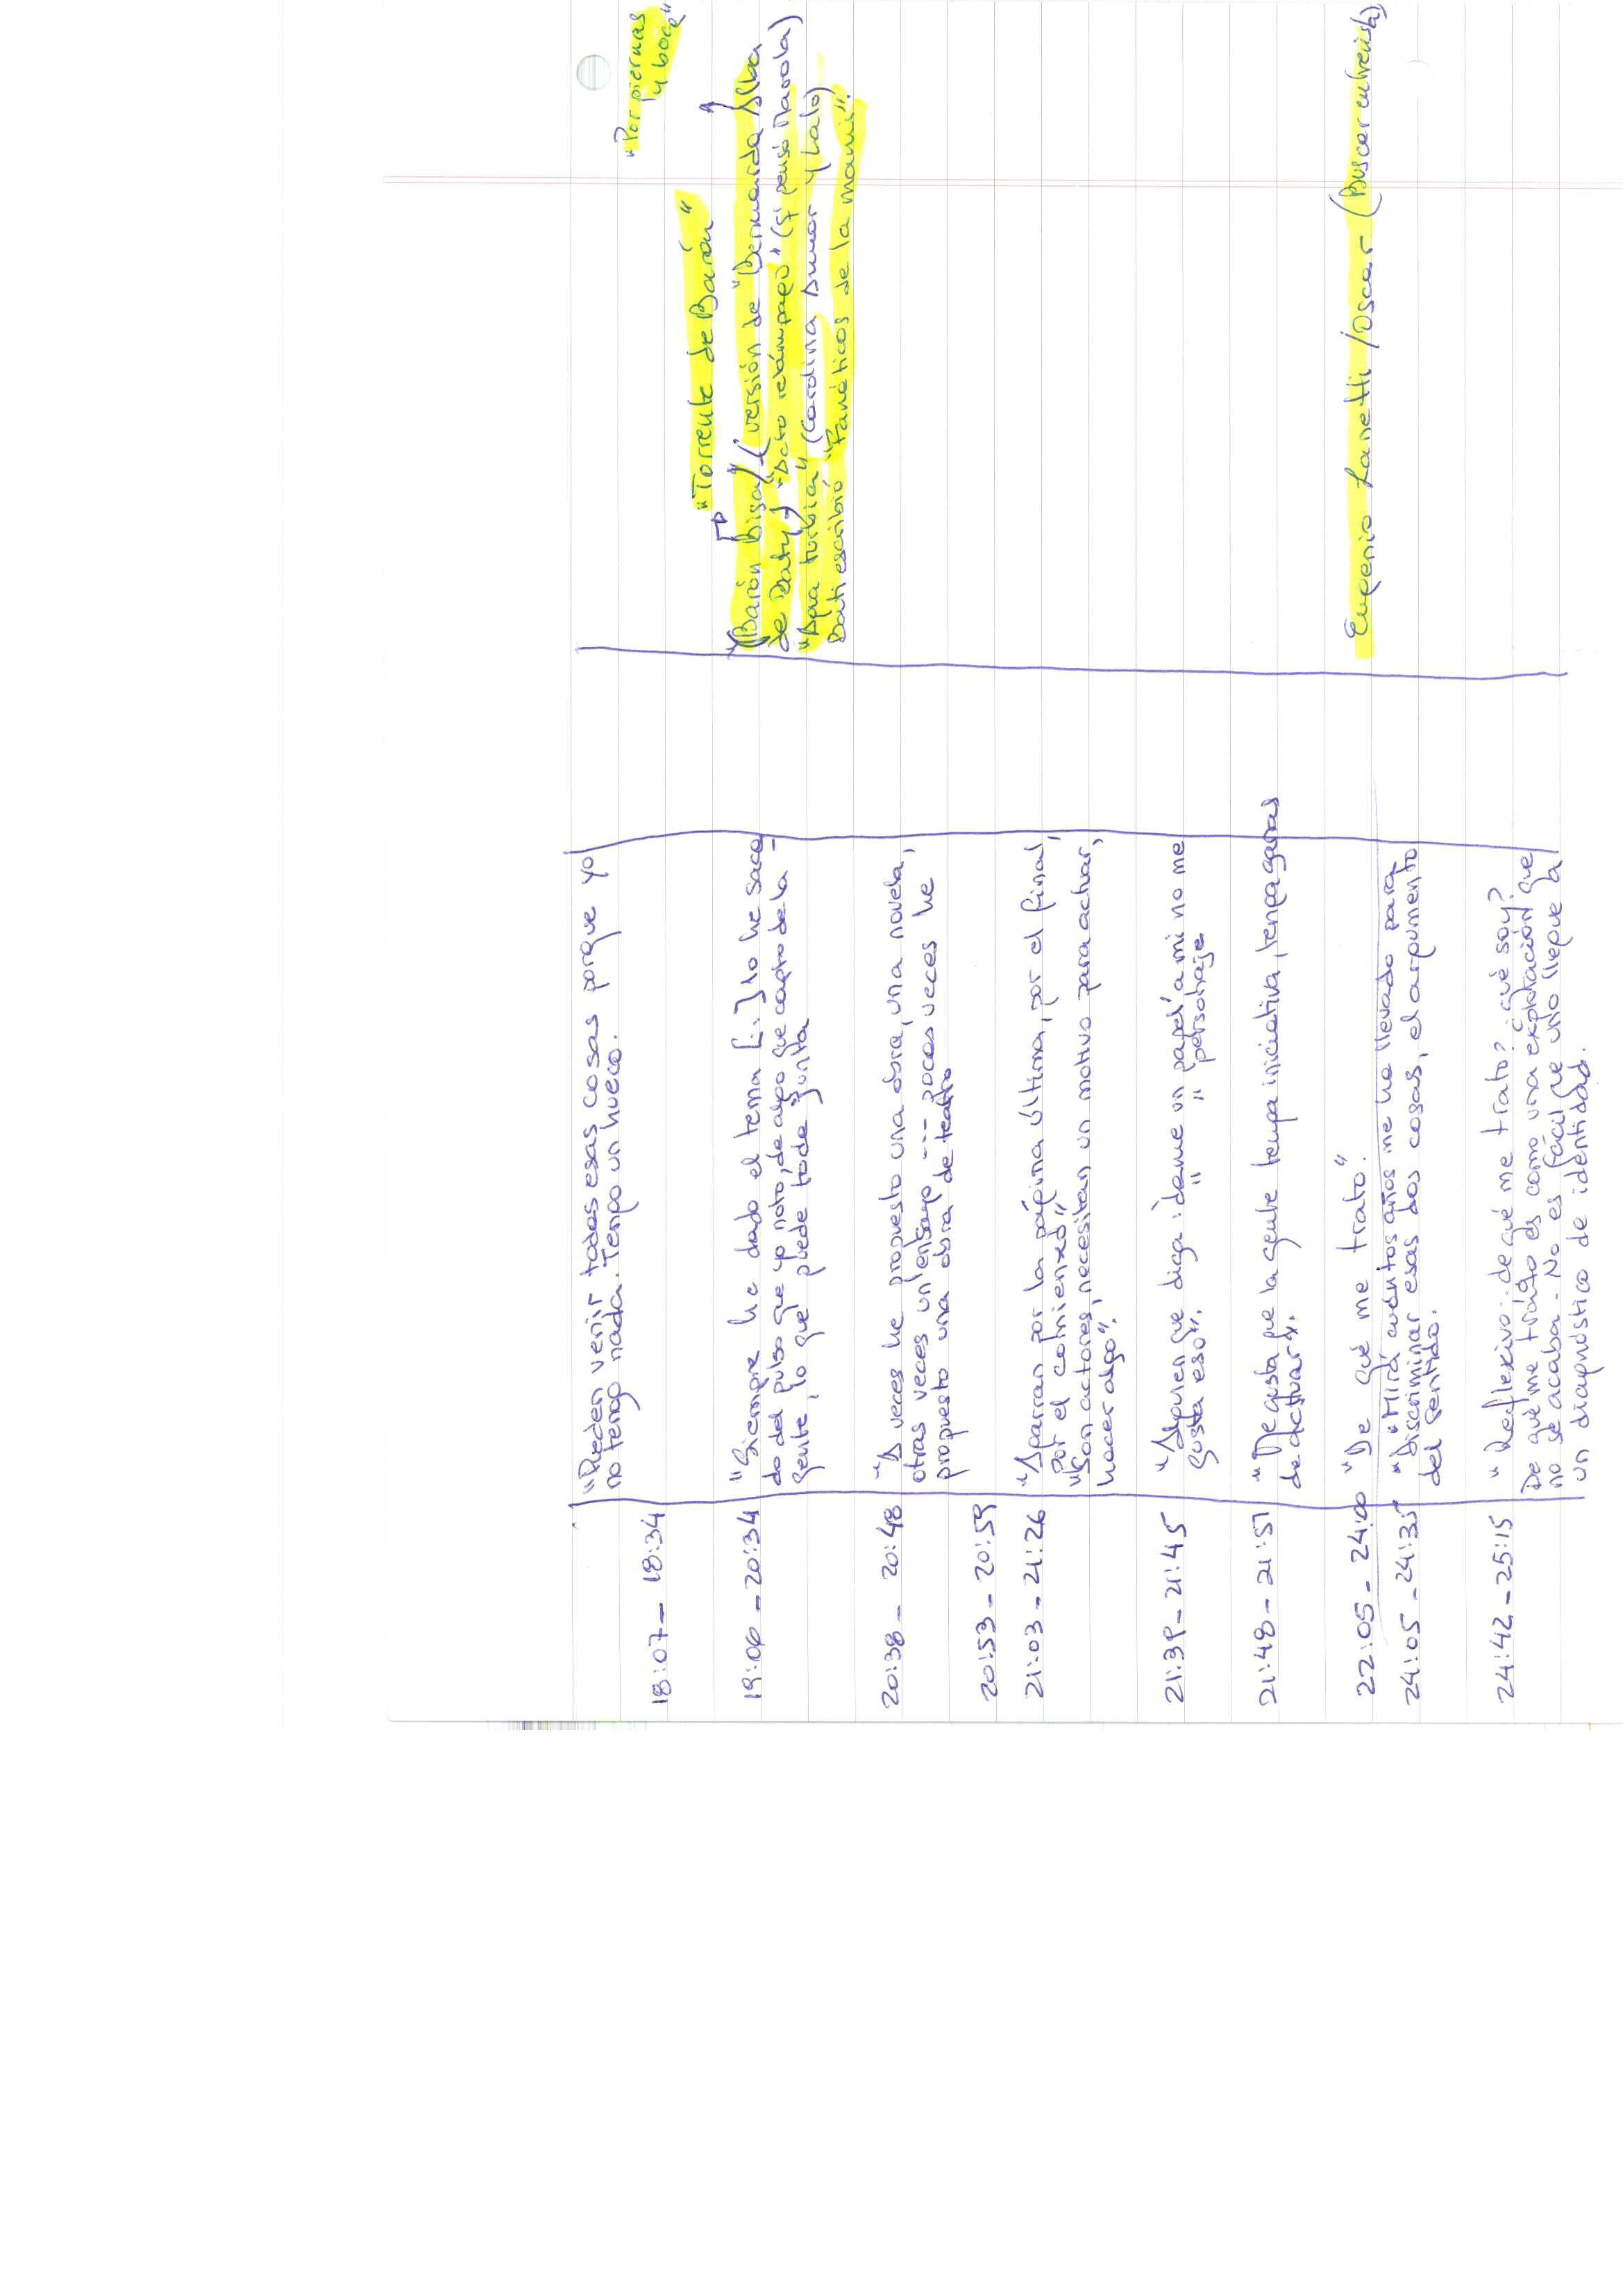 "Por piernas
y boca"
"Torrente de Barón"
18:07 - 18:34
"Pueden venir todas esas cosas porque yo
no tengo nada. Tengo un hueco.
19:00 - 20:34
"Siempre he dado el tema [..] lo he saca
do del pulso que yo noto, de algo que capto de la
gente, lo que puede toda junta
(Barón Biza) (versión de "Bernarda Alba
de Baty) "Acto relámpago" (Si pensó Marola)
"Agua turbia" (Carolina Dumor y Lalo)
Bati escribió "Fanáticos de la mami".
20:38 - 20:48
"A veces he propuesto una obra, una novela,
otras veces un ensayo --- pocas veces he
propuesto una obra de teatro
20:53 - 20:59
21:03 - 21:26
"Agarran por la página última, por el final,
por el comienzo"
"Son actores, necesitan un motivo para actuar,
hacer algo".
21:39 - 21:45
"Alguien que diga: deme un papel a mi no me
gusta eso". " " " personaje
21:48 - 21:57
"Me gusta que la gente tenga iniciativa, tenga ganas
de actuar".
22:05 - 24:00
"De qué me trato".
Eugenio Zanetti /Oscar - (Buscar entrevista)
24:05 - 24:35
"Mirá cuántos años me ha llevado para
discriminar esas dos cosas, el argumento
del sentido.
24:42 - 25:15
"Reflexivo: de qué me trato? ¿qué soy?
De qué me trato es como una explotación que
no se acaba - No es fácil que uno llegue a
un diagnóstico de identidad.